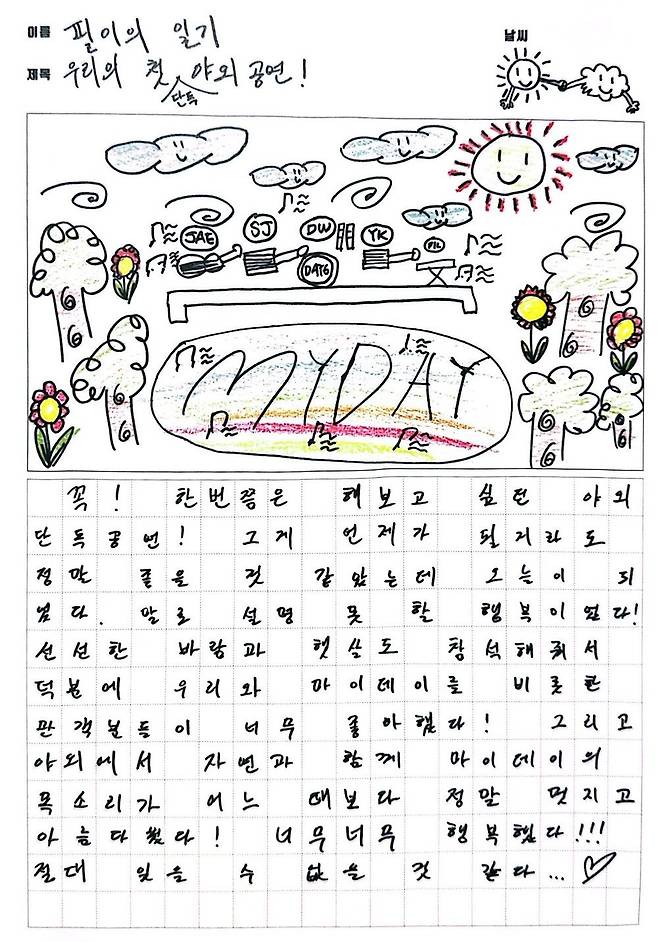 이름 필이의 일기
날씨
제목 우리의 첫 단독 야외 공연!
JAE
SJ
DW
YK
PIL
DAY6
MYDAY
꼭! 한번쯤은 해보고 싶던 야외
단독공연! 그게 언제가 될거라도
정말 좋을 것 같았는데 오늘이 되
었다. 말로 설명 못 할 행복이었다!
선선한 바람과 햇살도 참석해줘서
덕분에 우리와 마이데이를 비롯한
관객분들이 너무 좋아했다! 그리고
야외에서 자연과 함께 마이데이의
목소리가 어느 때보다 정말 멋지고
아름다웠다! 너무너무 행복했다!!!
절대 잊을 수 없을 것 같다...♡